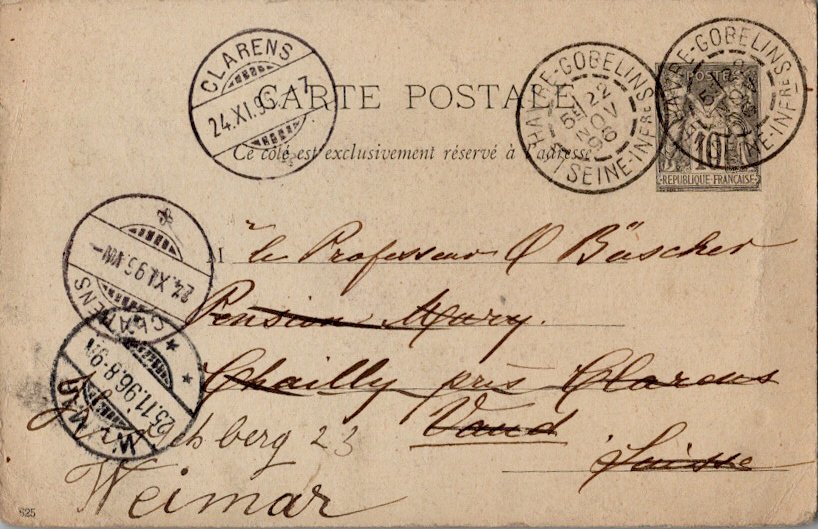 CLARENS
24.XI.96. 7
CARTE POSTALE
Ce côté est exclusivement réservé à l'adresse
HAVRE-GOBELINS
5E 22
NOV
96
SEINE-INFRE
HAVRE-GOBELINS
NOV
96
SEINE-INFRE
POSTES
10
REPUBLIQUE FRANÇAISE
M le Professeur O Büscher
24.XI.96.VIII
CLARENS
Pension Mury.
Chailly près Clarens
25.11.96.8-9
berg 23
Vaud
Suisse
Weimar
625